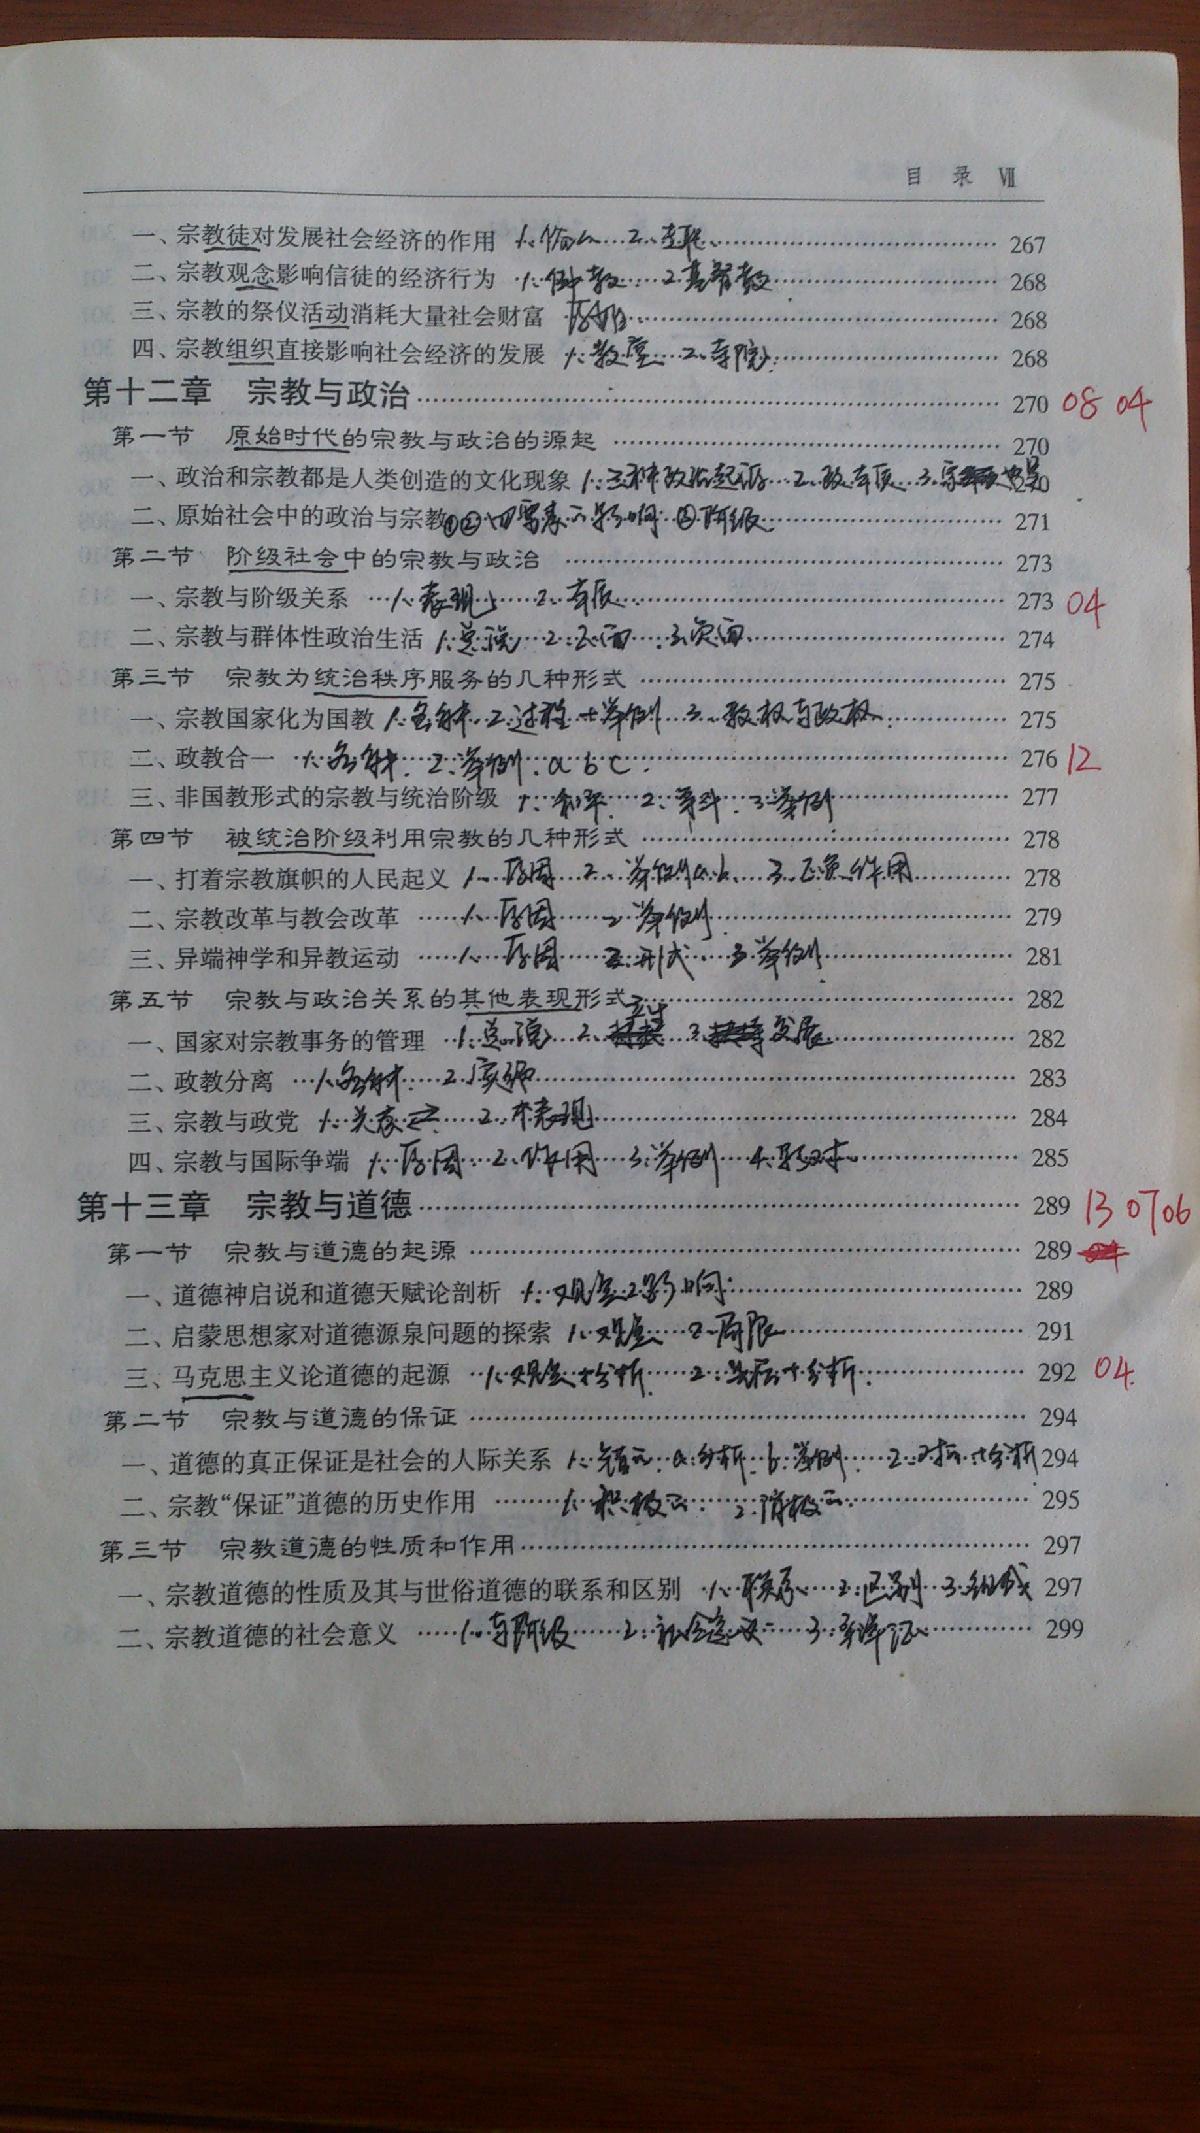 目 录 Ⅶ
一、宗教徒对发展社会经济的作用 1. 2. 267
二、宗教观念影响信徒的经济行为 1.佛教 2.基督教 268
三、宗教的祭仪活动消耗大量社会财富 268
四、宗教组织直接影响社会经济的发展 1.教堂 2.寺院 268
第十二章 宗教与政治 270 08 04
第一节 原始时代的宗教与政治的源起 270
一、政治和宗教都是人类创造的文化现象 1.三种政治起源 2.政本质 3. 270
二、原始社会中的政治与宗教 ①②四 影响 ③阶级 271
第二节 阶级社会中的宗教与政治 273
一、宗教与阶级关系 1.表现 2.本质 273 04
二、宗教与群体性政治生活 1.总说 2.正面 3.负面 274
第三节 宗教为统治秩序服务的几种形式 275
一、宗教国家化为国教 1.名解 2.过程+举例 3.教权与政权 275
二、政教合一 1.名解 2.举例 a b c 276 12
三、非国教形式的宗教与统治阶级 1.和平 2.争斗 3.举例 277
第四节 被统治阶级利用宗教的几种形式 278
一、打着宗教旗帜的人民起义 1.原因 2.举例a.b. 3.正负作用 278
二、宗教改革与教会改革 1.原因 2.举例 279
三、异端神学和异教运动 1.原因 2.形式 3.举例 281
第五节 宗教与政治关系的其他表现形式 282
一、国家对宗教事务的管理 1.总说 2.产生 3.发展 282
二、政教分离 1.名解 2.实施 283
三、宗教与政党 1.关系⇄ 2.表现 284
四、宗教与国际争端 1.原因 2.作用 3.举例 4. 285
第十三章 宗教与道德 289 13 07 06
第一节 宗教与道德的起源 289
一、道德神启说和道德天赋论剖析 1.观点 2.影响 289
二、启蒙思想家对道德源泉问题的探索 1.观点 2.局限 291
三、马克思主义论道德的起源 1.观点+分析 2. +分析 292 04
第二节 宗教与道德的保证 294
一、道德的真正保证是社会的人际关系 1. a.分析 b.举例 2. +分析 294
二、宗教“保证”道德的历史作用 1.积极 2.消极 295
第三节 宗教道德的性质和作用 297
一、宗教道德的性质及其与世俗道德的联系和区别 1.联系 2.区别 3.组成 297
二、宗教道德的社会意义 1.与阶级 2.社会意义 3. 299